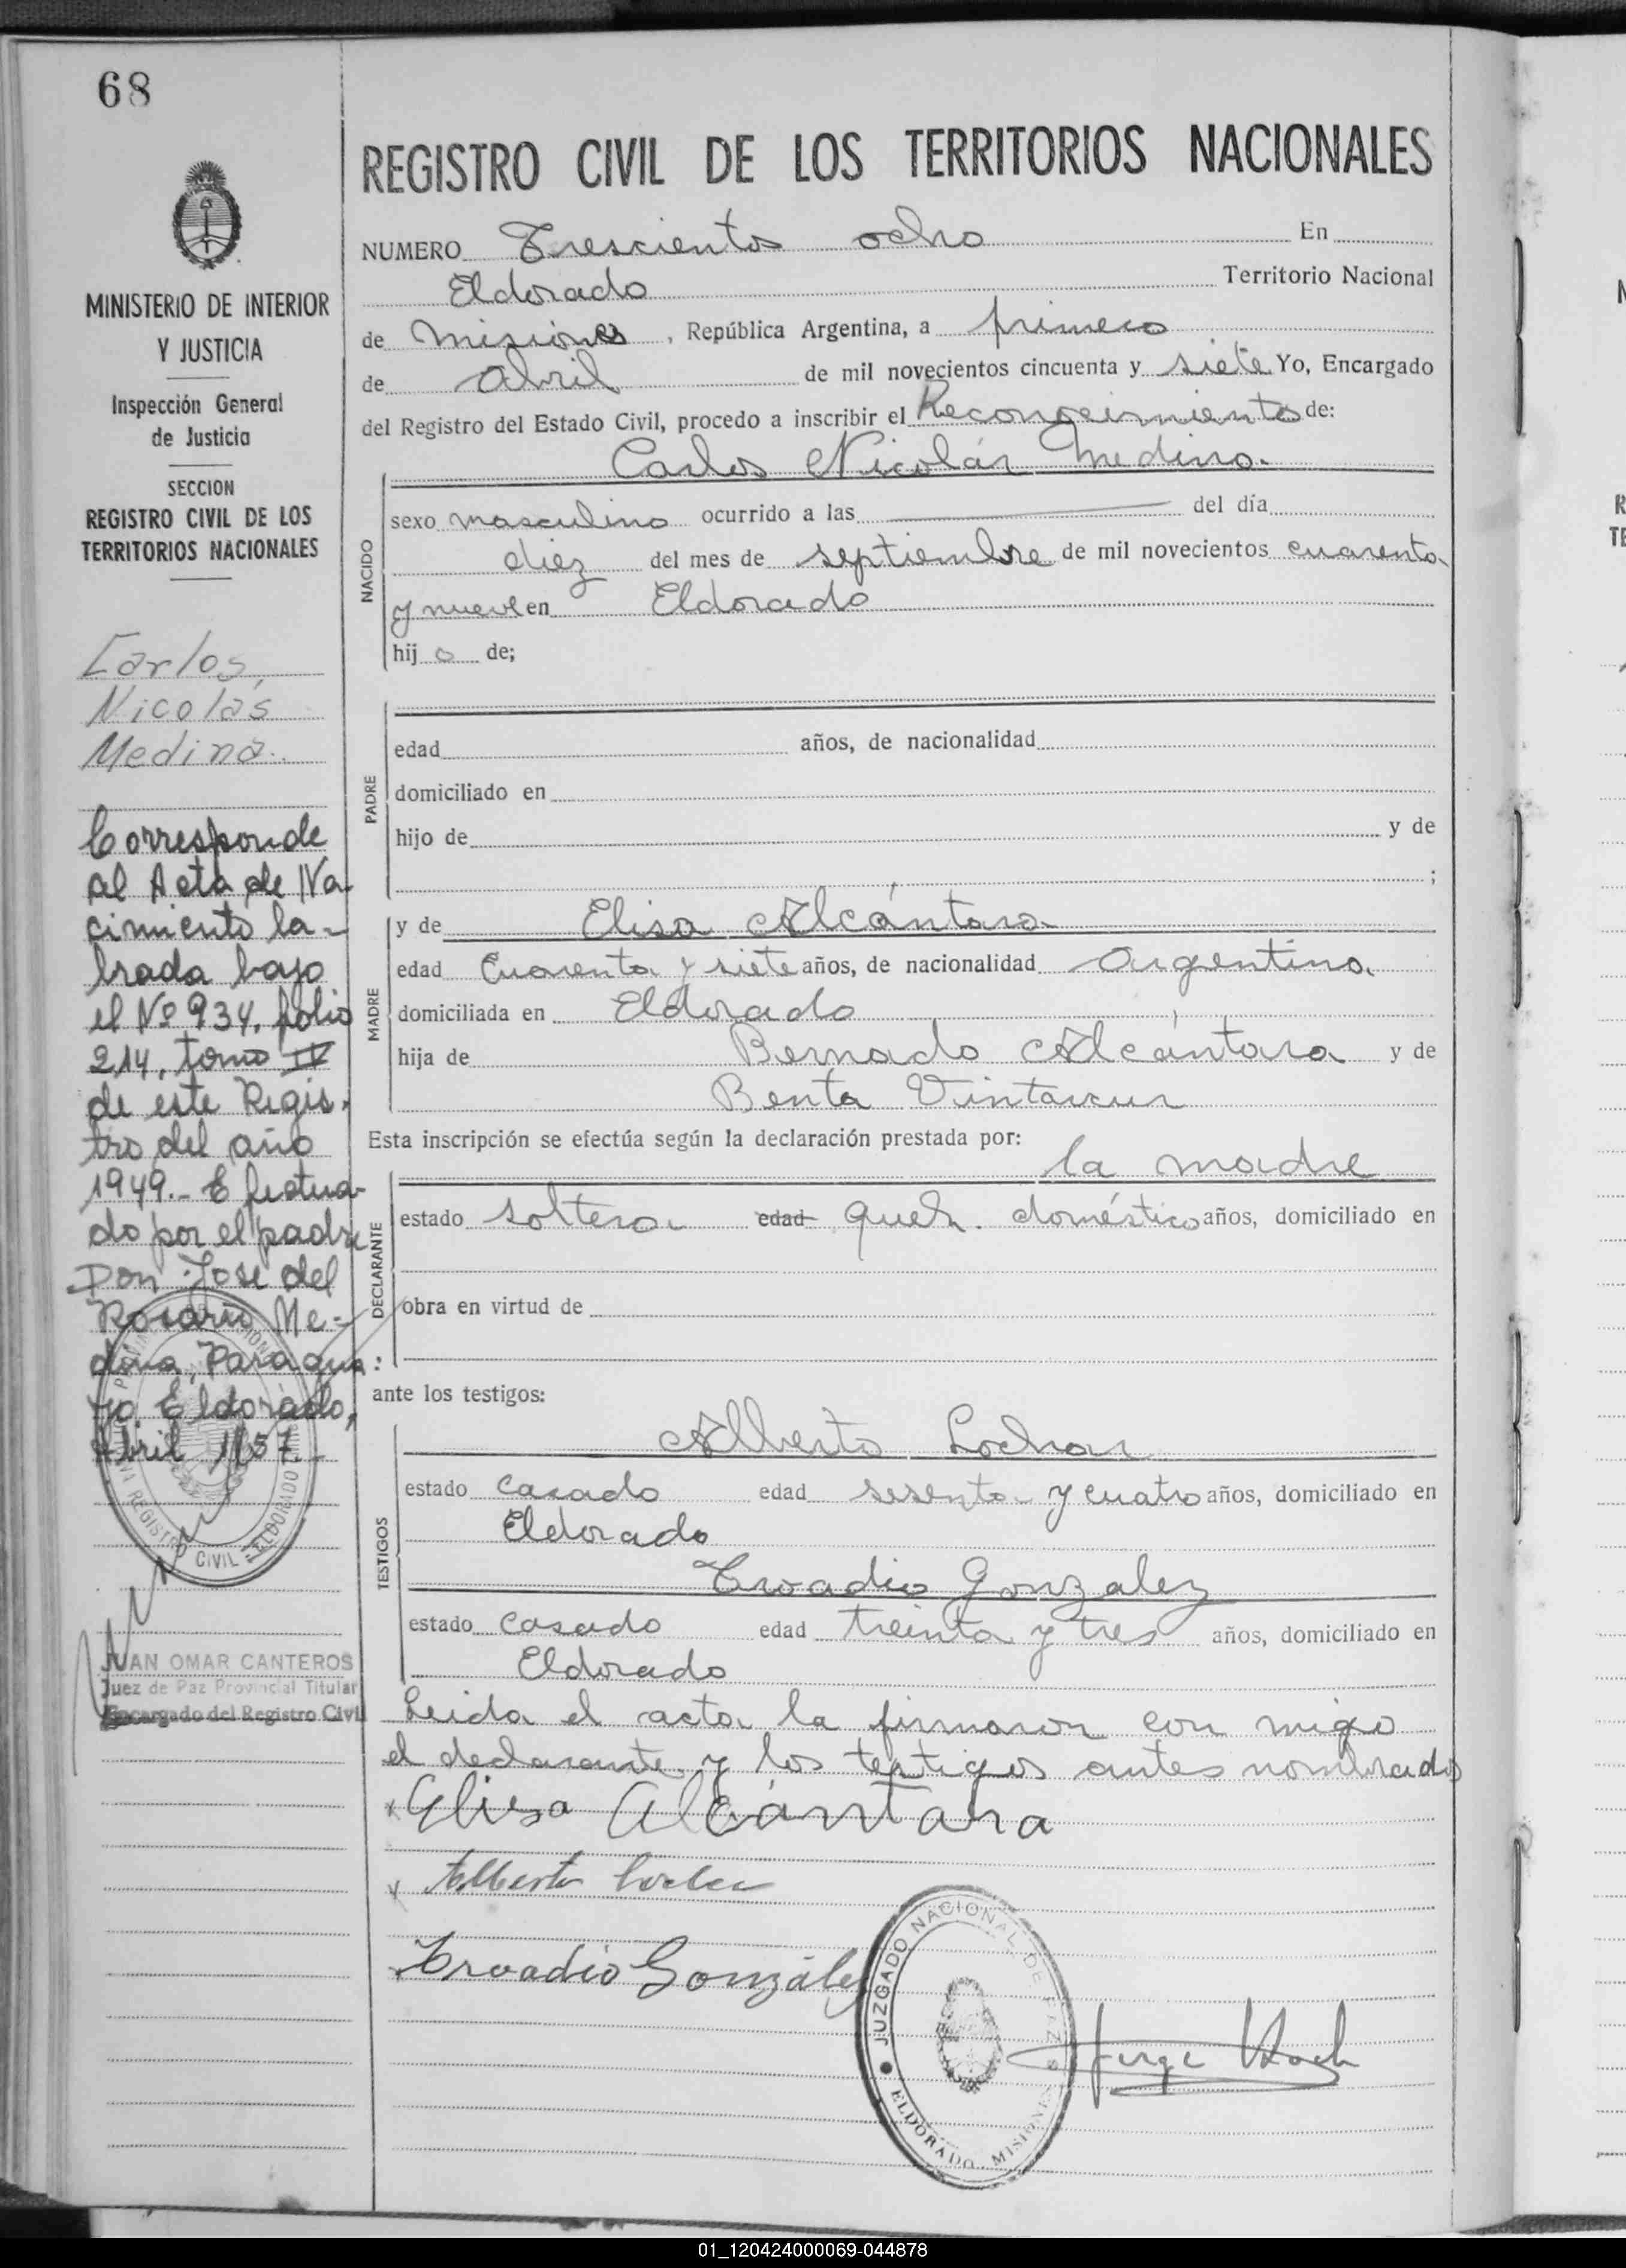 68
REGISTRO CIVIL DE LOS TERRITORIOS NACIONALES
MINISTERIO DE INTERIOR
Y JUSTICIA
Inspección General
de Justicia
SECCION
REGISTRO CIVIL DE LOS
TERRITORIOS NACIONALES
Carlos
Nicolás
Medina.
Corresponde
al Acta de Na-
cimiento la-
brada bajo
el Nº 934, folio
214, tomo IV
de este Regis-
tro del año
1949.- Efectua-
do por el padre
Don José del
Rosario Me-
dina, Paragua-
yo. Eldorado,
Abril 1/57.
REGISTRO CIVIL ELDORADO
JUAN OMAR CANTEROS
Juez de Paz Provincial Titular
Encargado del Registro Civil
NUMERO Trescientos ocho En
Eldorado Territorio Nacional
de Misiones, República Argentina, a primero
de Abril de mil novecientos cincuenta y siete Yo, Encargado
del Registro del Estado Civil, procedo a inscribir el Reconocimiento de:
Carlos Nicolás Medina.
NACIDO
sexo masculino ocurrido a las del día
diez del mes de septiembre de mil novecientos cuarenta
y nueve en Eldorado
hijo de;
PADRE
edad años, de nacionalidad
domiciliado en
hijo de y de
;
MADRE
y de Elisa Alcántara
edad Cuarenta y siete años, de nacionalidad Argentina
domiciliada en Eldorado
hija de Bernado Alcántara y de
Benta
Esta inscripción se efectúa según la declaración prestada por:
la madre
DECLARANTE
estado soltera edad queh. doméstico años, domiciliado en
obra en virtud de
:
ante los testigos:
TESTIGOS
Alberto Lochar
estado Casado edad sesenta y cuatro años, domiciliado en
Eldorado
Troadio Gonzalez
estado Casado edad treinta y tres años, domiciliado en
Eldorado
Leida el acta la firmaron con migo
el declarante y los testigos antes nombrados
x Elisa Alcántara
x Alberto
Troadio González
JUZGADO NACIONAL DE PAZ
ELDORADO - MISIONES
Jorge
01_120424000069-044878